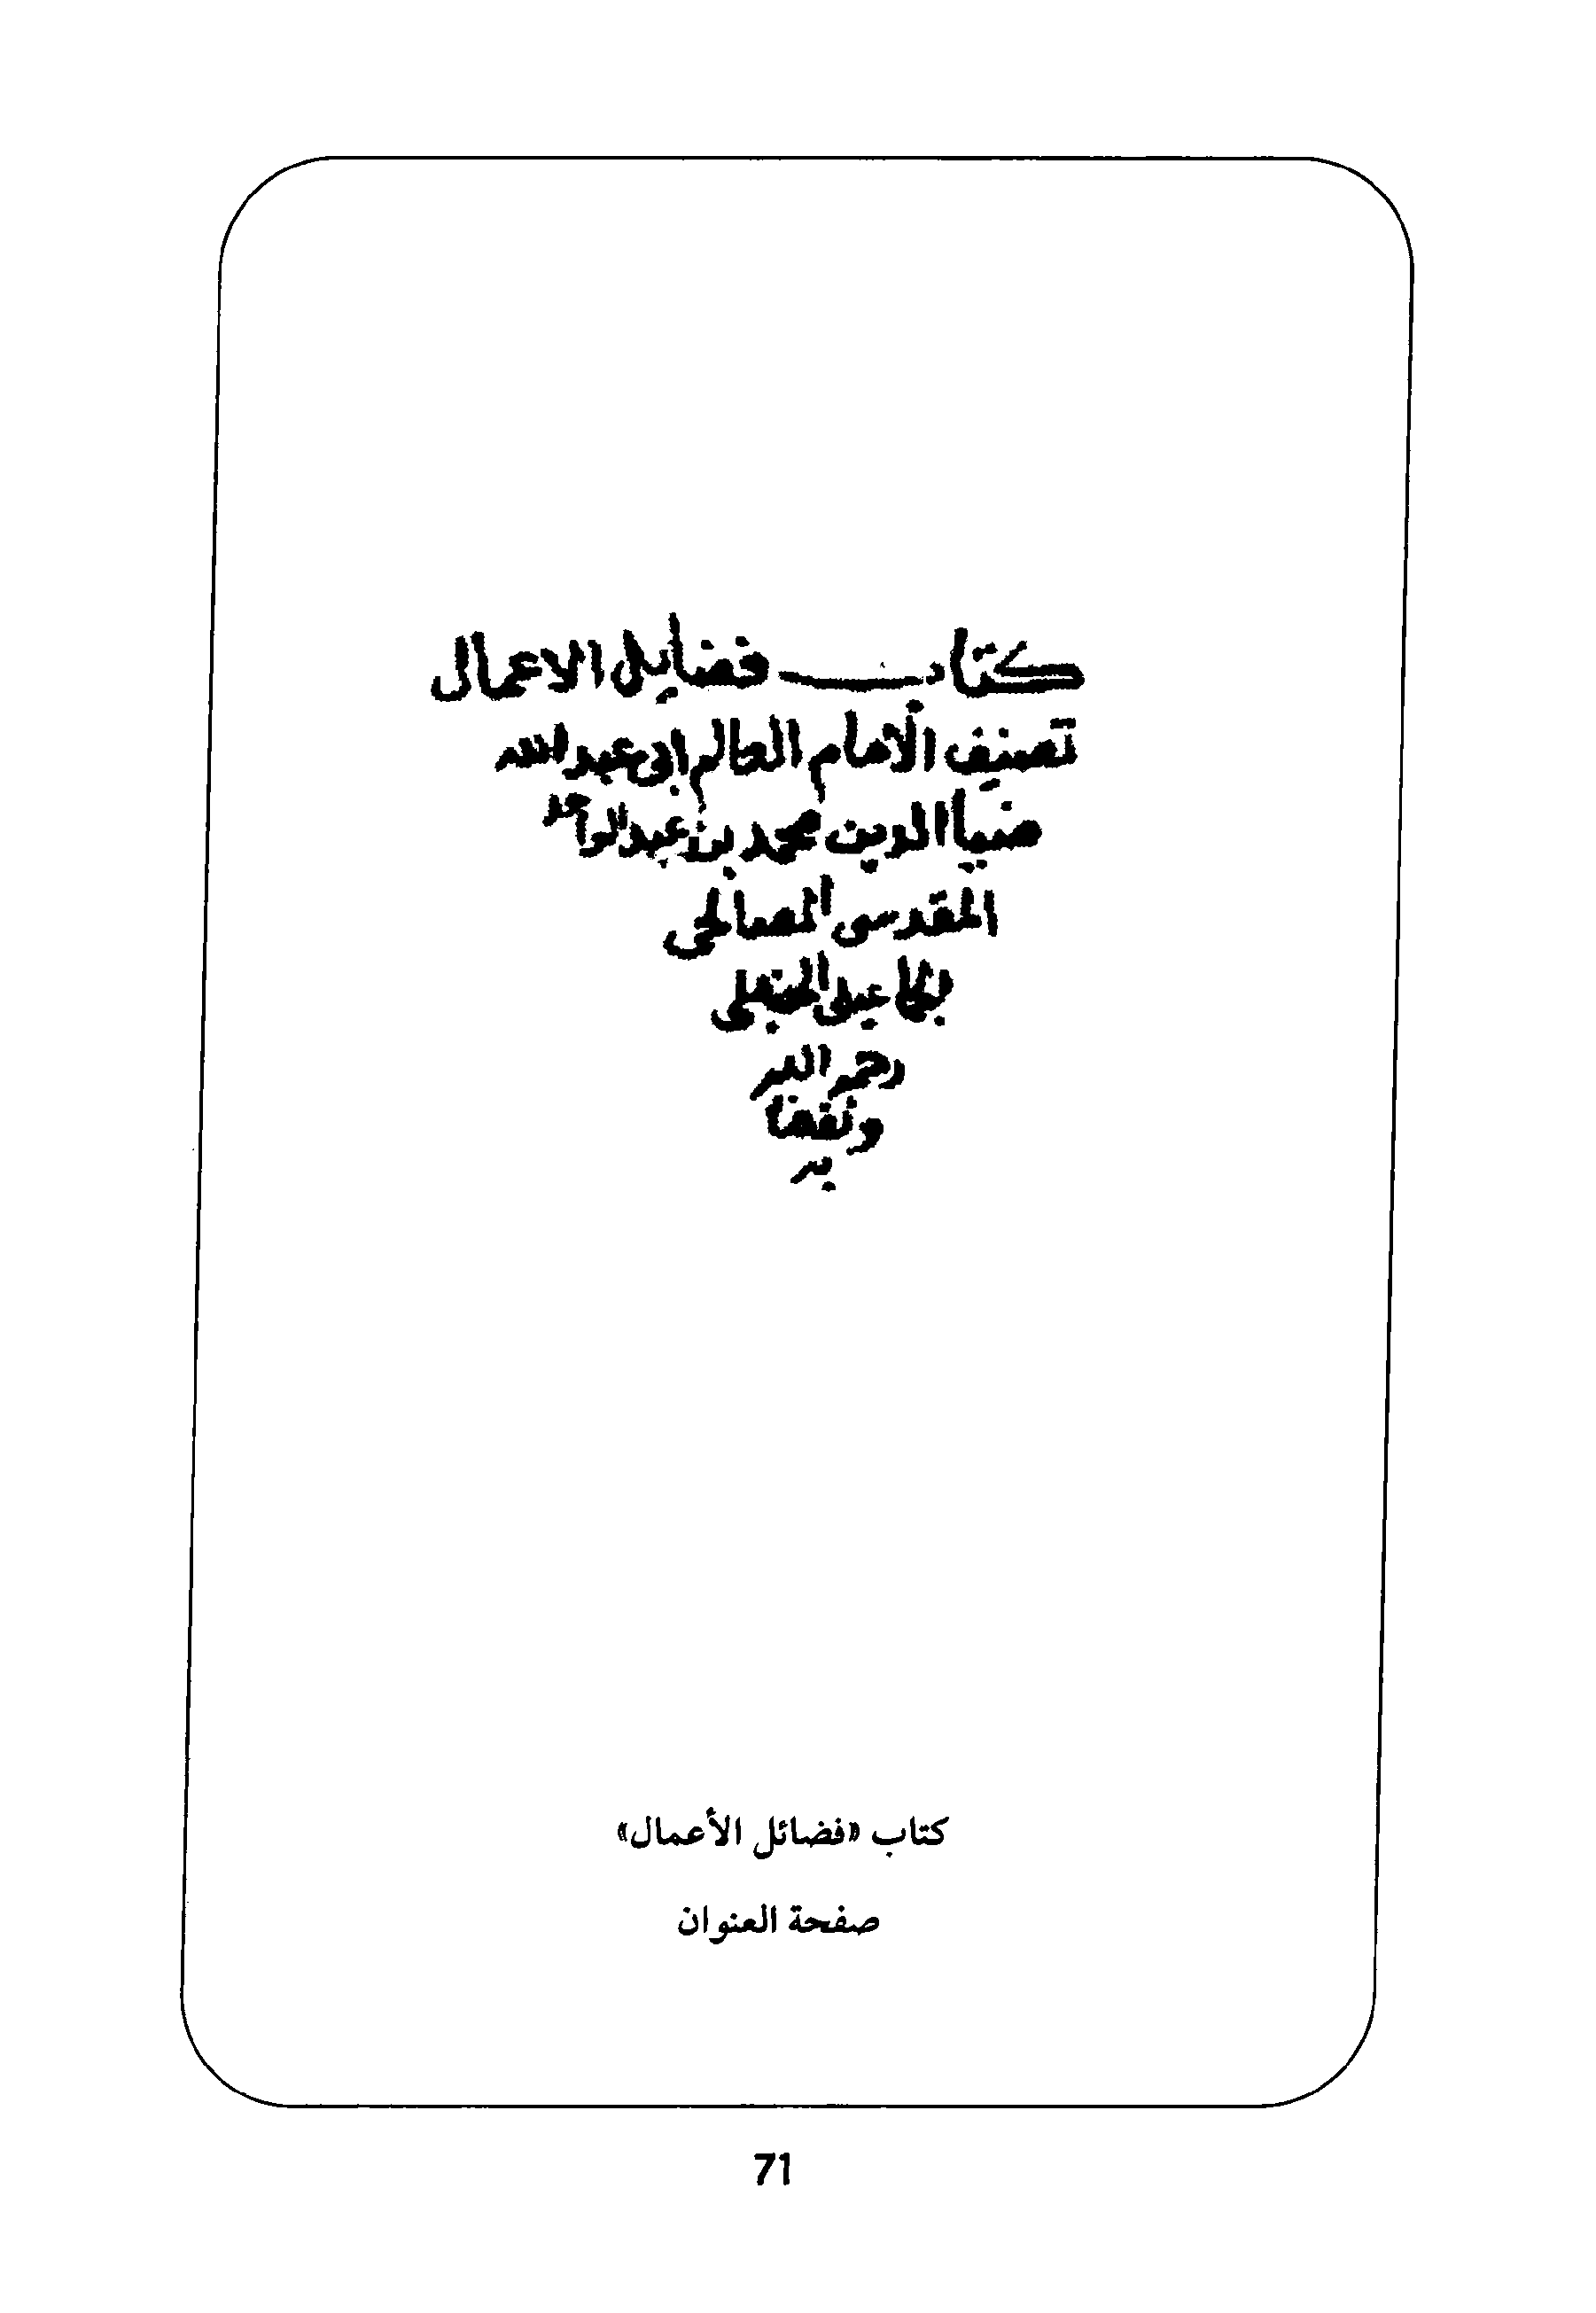 كتاب فضايل الاعمال
تصنيف الامام العالم ابى عبد الله
ضيا الدين محمد بن عبد الواحد
المقدسى الصالحي
الجماعيلى الحنبلى
رحمه الله
ونفعنا
به
كتاب «فضائل الأعمال»
صفحة العنوان
71